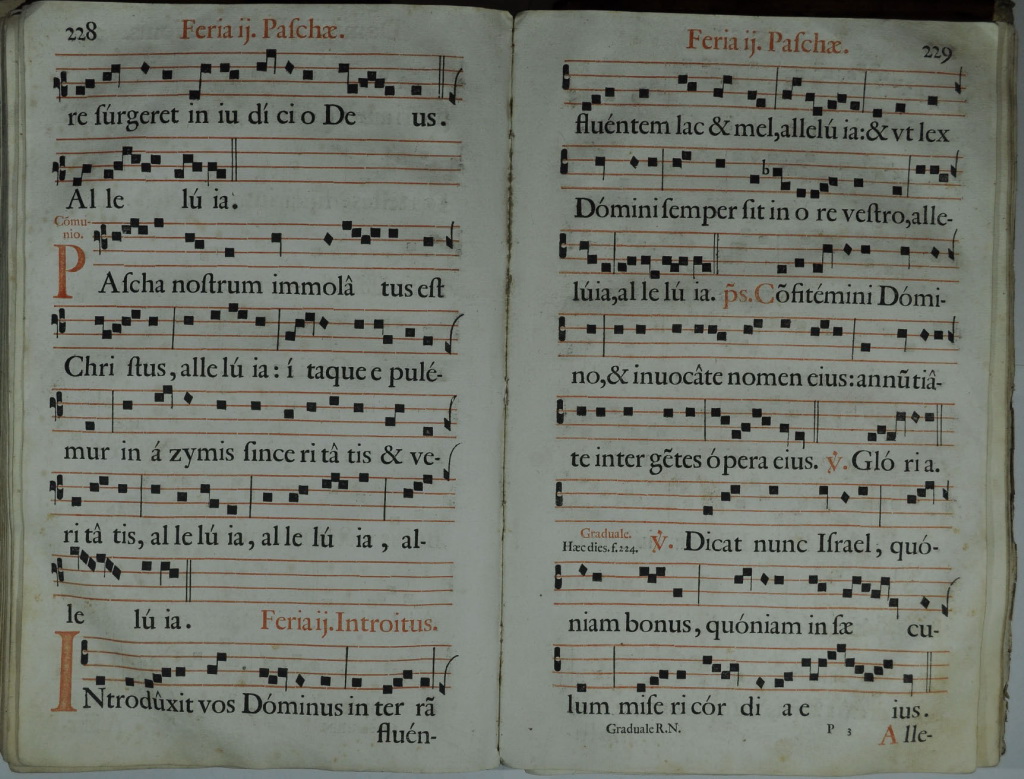 228
Feria ij. Paſchæ.
re ſúrgeret in iu dí ci o De us.
Al le lú ia.
Cómu-
nio.
PAſcha noſtrum immolâ tus eſt
Chri ſtus, alle lú ia: í taque e pulé-
mur in á zymis ſince ri tâ tis & ve-
ri tâ tis, al le lú ia, al le lú ia, al-
le lú ia.
Feria ij. Introitus.
INtrodûxit vos Dóminus in ter rã
fluén-
Feria ij. Paſchæ.
229
fluéntem lac & mel, allelú ia: & vt lex
Dómini ſemper ſit in o re veſtro, alle-
lúia, al le lú ia. p̃s. Cõfitémini Dómi-
no, & inuocâte nomen eius: annũtiâ-
te inter gẽtes ópera eius. ℣. Gló ri a.
Graduale.
Hæc dies. f. 224.
℣. Dicat nunc Iſrael, quó-
niam bonus, quóniam in ſæ cu-
lum miſe ri cór di a e ius.
Graduale R.N.
P 3
Alle-